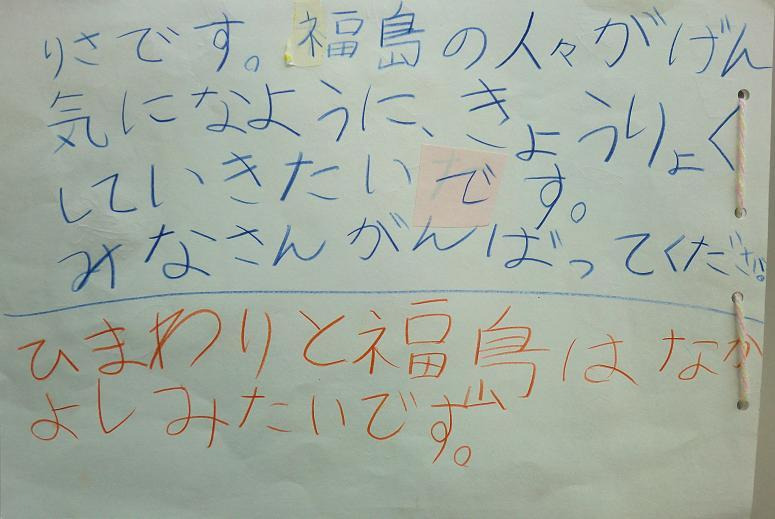 りさです。福島の人々がげん
気になように、きょうりょく
していきたいです。
みなさんがんばってくださ
ひまわりと福島はなか
よしみたいです。